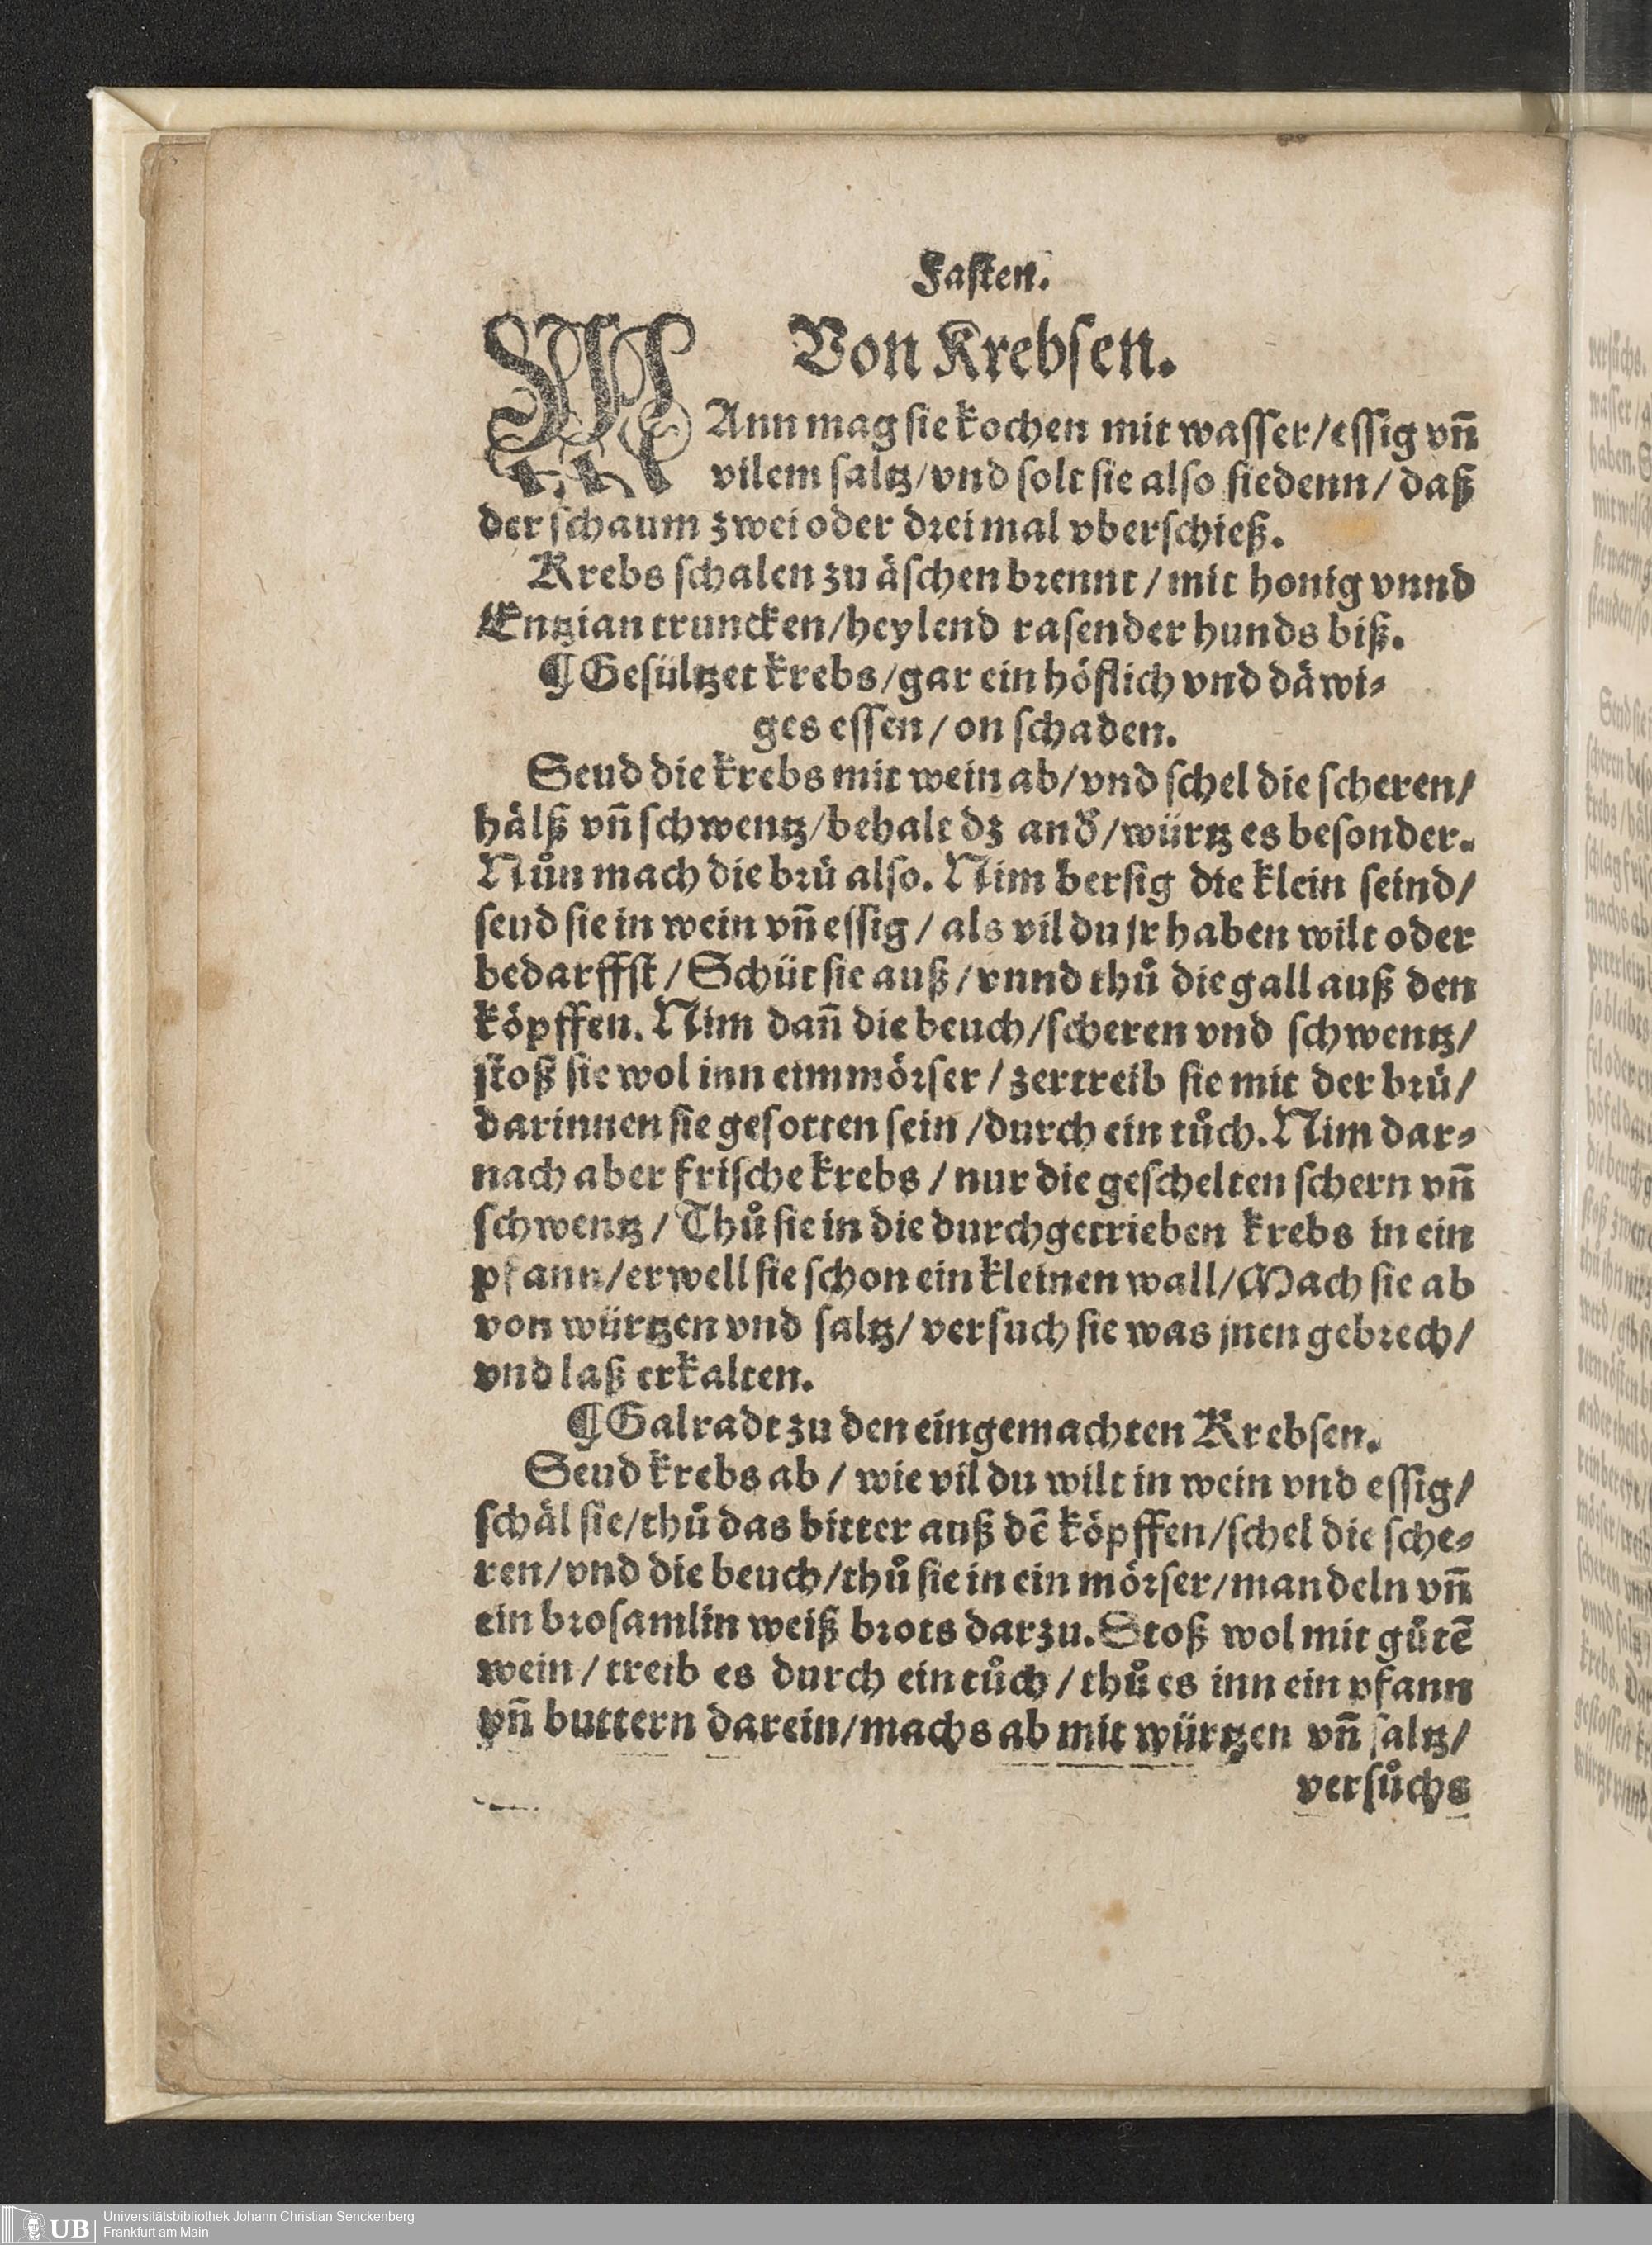 Fasten.
Von Krebsen.
MAnn mag sie kochen mit wasser/essig vñ
vilem saltz/vnd solt sie also siedenn/ daß
der schaum zwei oder drei mal vberschieß.
Krebs schalen zu äschen brennt/ mit honig vnnd
Entzian truncken/heylend rasender hunds biß.
¶ Gesültzet krebs/gar ein höflich vnd däwi-
ges essen/ on schaden.
Seud die krebs mit wein ab/vnd schel die scheren/
hälß vñ schwentz/behalt dz and̄/würtz es besonder.
Nůn mach die brü also. Nim bersig die klein seind/
seud sie in wein vñ essig/ als vil du jr haben wilt oder
bedarffst/ Schüt sie auß/ vnnd thů die gall auß den
köpffen. Nim dañ die beuch/scheren vnd schwentz/
stoß sie wol inn eim mörser/ zertreib sie mit der brü/
darinnen sie gesotten sein/durch ein tůch. Nim dar-
nach aber frische krebs/ nur die geschelten schern vñ
schwentz/ Thů sie in die durchgetrieben krebs in ein
pfann/erwell sie schon ein kleinen wall/Mach sie ab
von würtzen vnd saltz/ versuch sie was jnen gebrech/
vnd laß erkalten.
¶ Galradt zu den eingemachten Krebsen.
Seud krebs ab/ wie vil du wilt in wein vnd essig/
schäl sie/thů das bitter auß dē köpffen/schel die sche-
ren/vnd die beuch/thů sie in ein mörser/mandeln vñ
ein brosamlin weiß brots darzu. Stoß wol mit gůtē
wein/ treib es durch ein tůch/ thů es inn ein pfann
vñ buttern darein/machs ab mit würtzen vñ saltz/
versůchs
UB
Universitätsbibliothek Johann Christian Senckenberg
Frankfurt am Main